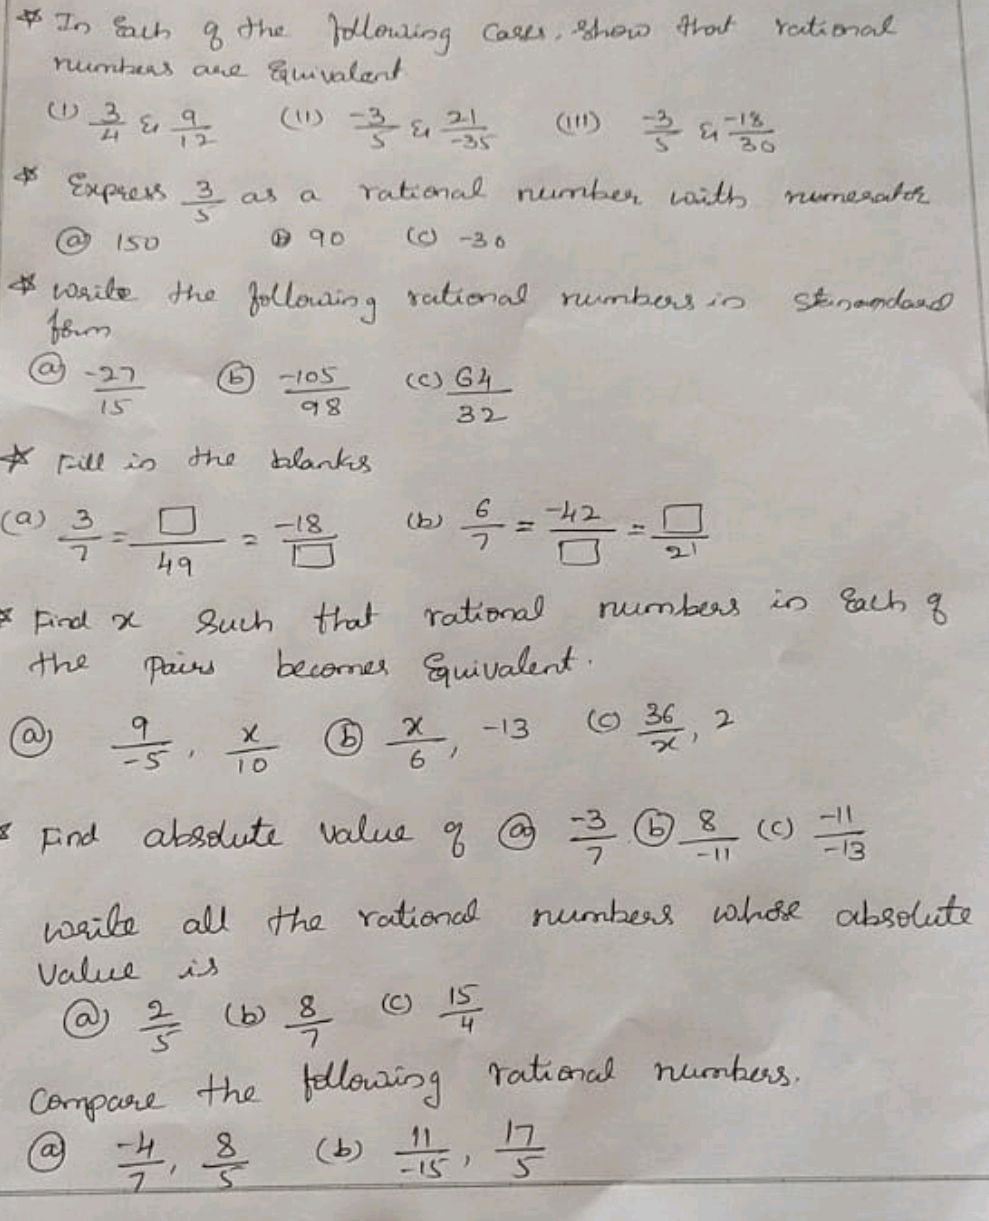 * In Each of the following cases, show that rational
numbers are Equivalent
(i) 3/4 & 9/12 (ii) -3/5 & 21/-35 (iii) -3/5 & -18/30
* Express 3/5 as a rational number with numerator
(a) 150 (b) 90 (c) -30
* write the following rational numbers in stanandard
form
(a) -27/15 (b) -105/98 (c) 64/32
* Fill in the blanks
(a) 3/7 = □/49 = -18/□ (b) 6/7 = -42/□ = □/21
* Find x such that rational numbers in Each of
the pairs becomes Equivalent.
(a) 9/-5, x/10 (b) x/6, -13 (c) 36/x, 2
* Find absolute value of (a) -3/7 (b) 8/-11 (c) -11/-13
write all the rational numbers whose absolute
value is
(a) 2/5 (b) 8/7 (c) 15/4
Compare the following rational numbers.
(a) -4/7, 8/5 (b) 11/-15, 17/5